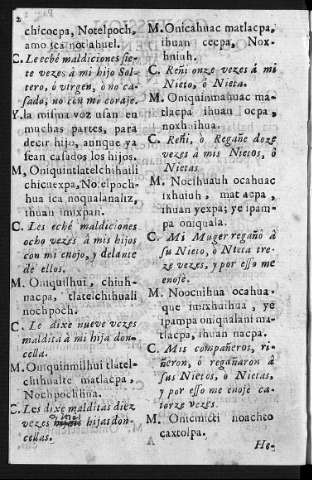 2
chicocpa, Notelpoch,
amo ica notlahuel.
C. Le eché maldiciones sie-
te vezes à mi hijo Sol-
tero, ò virgen, ò no ca-
sado; no con mi coraje.
Y la misma voz usan en
muchas partes, para
decir hijo, aunque ya
sean casados los hijos.
M. Oniquintlatelchihuili
chicuexpa, Notelpoch-
hua ica noqualanaliz,
ihuan imixpan.
C. Les eché maldiciones
ocho vezes à mis hijos
con mi enojo, y delante
de ellos.
M. Oniquilhui, chiuh-
nacpa, tlatelchihualli
nochpoch.
C. Le dixe nueve vezes
maldita à mi hija don-
cella.
M. Oniquinmilhui tlatel-
chihualte matlacpa,
Nochpochhua.
C. Les dixe malditas diez
vezes hijas don-
cellas.
M. Onicahuac matlacpa,
ihuan cecpa, Nox-
huiuh.
C. Reñi onze vezes à mi
Nieto, ò Nieta.
M. Oniquinmahuac ma-
tlacpa ihuan ocpa,
noxhuihua.
C. Reñi, ò Regañe doze
vezes à mis Nietos, ò
Nietas.
M. Nocihuauh ocahuac
ixhuiuh, matlacpa,
ihuan yexpa; ye ipam-
pa oniquala.
C. Mi Muger regañò à
su Nieto, ò Nieta tre-
ze vezes, y por esso me
enojé.
M. Noocnihua ocahua-
que imixhuihua, ye
ipampa oniqualani ma-
tlacpa, ihuan nacpa.
C. Mis compañeros, ri-
ñeron, ò regañaron à
sus Nietos, ò Nietas,
y por esso me enojé ca-
torze vezes.
M. noachco
caxtolpa.
A
He-